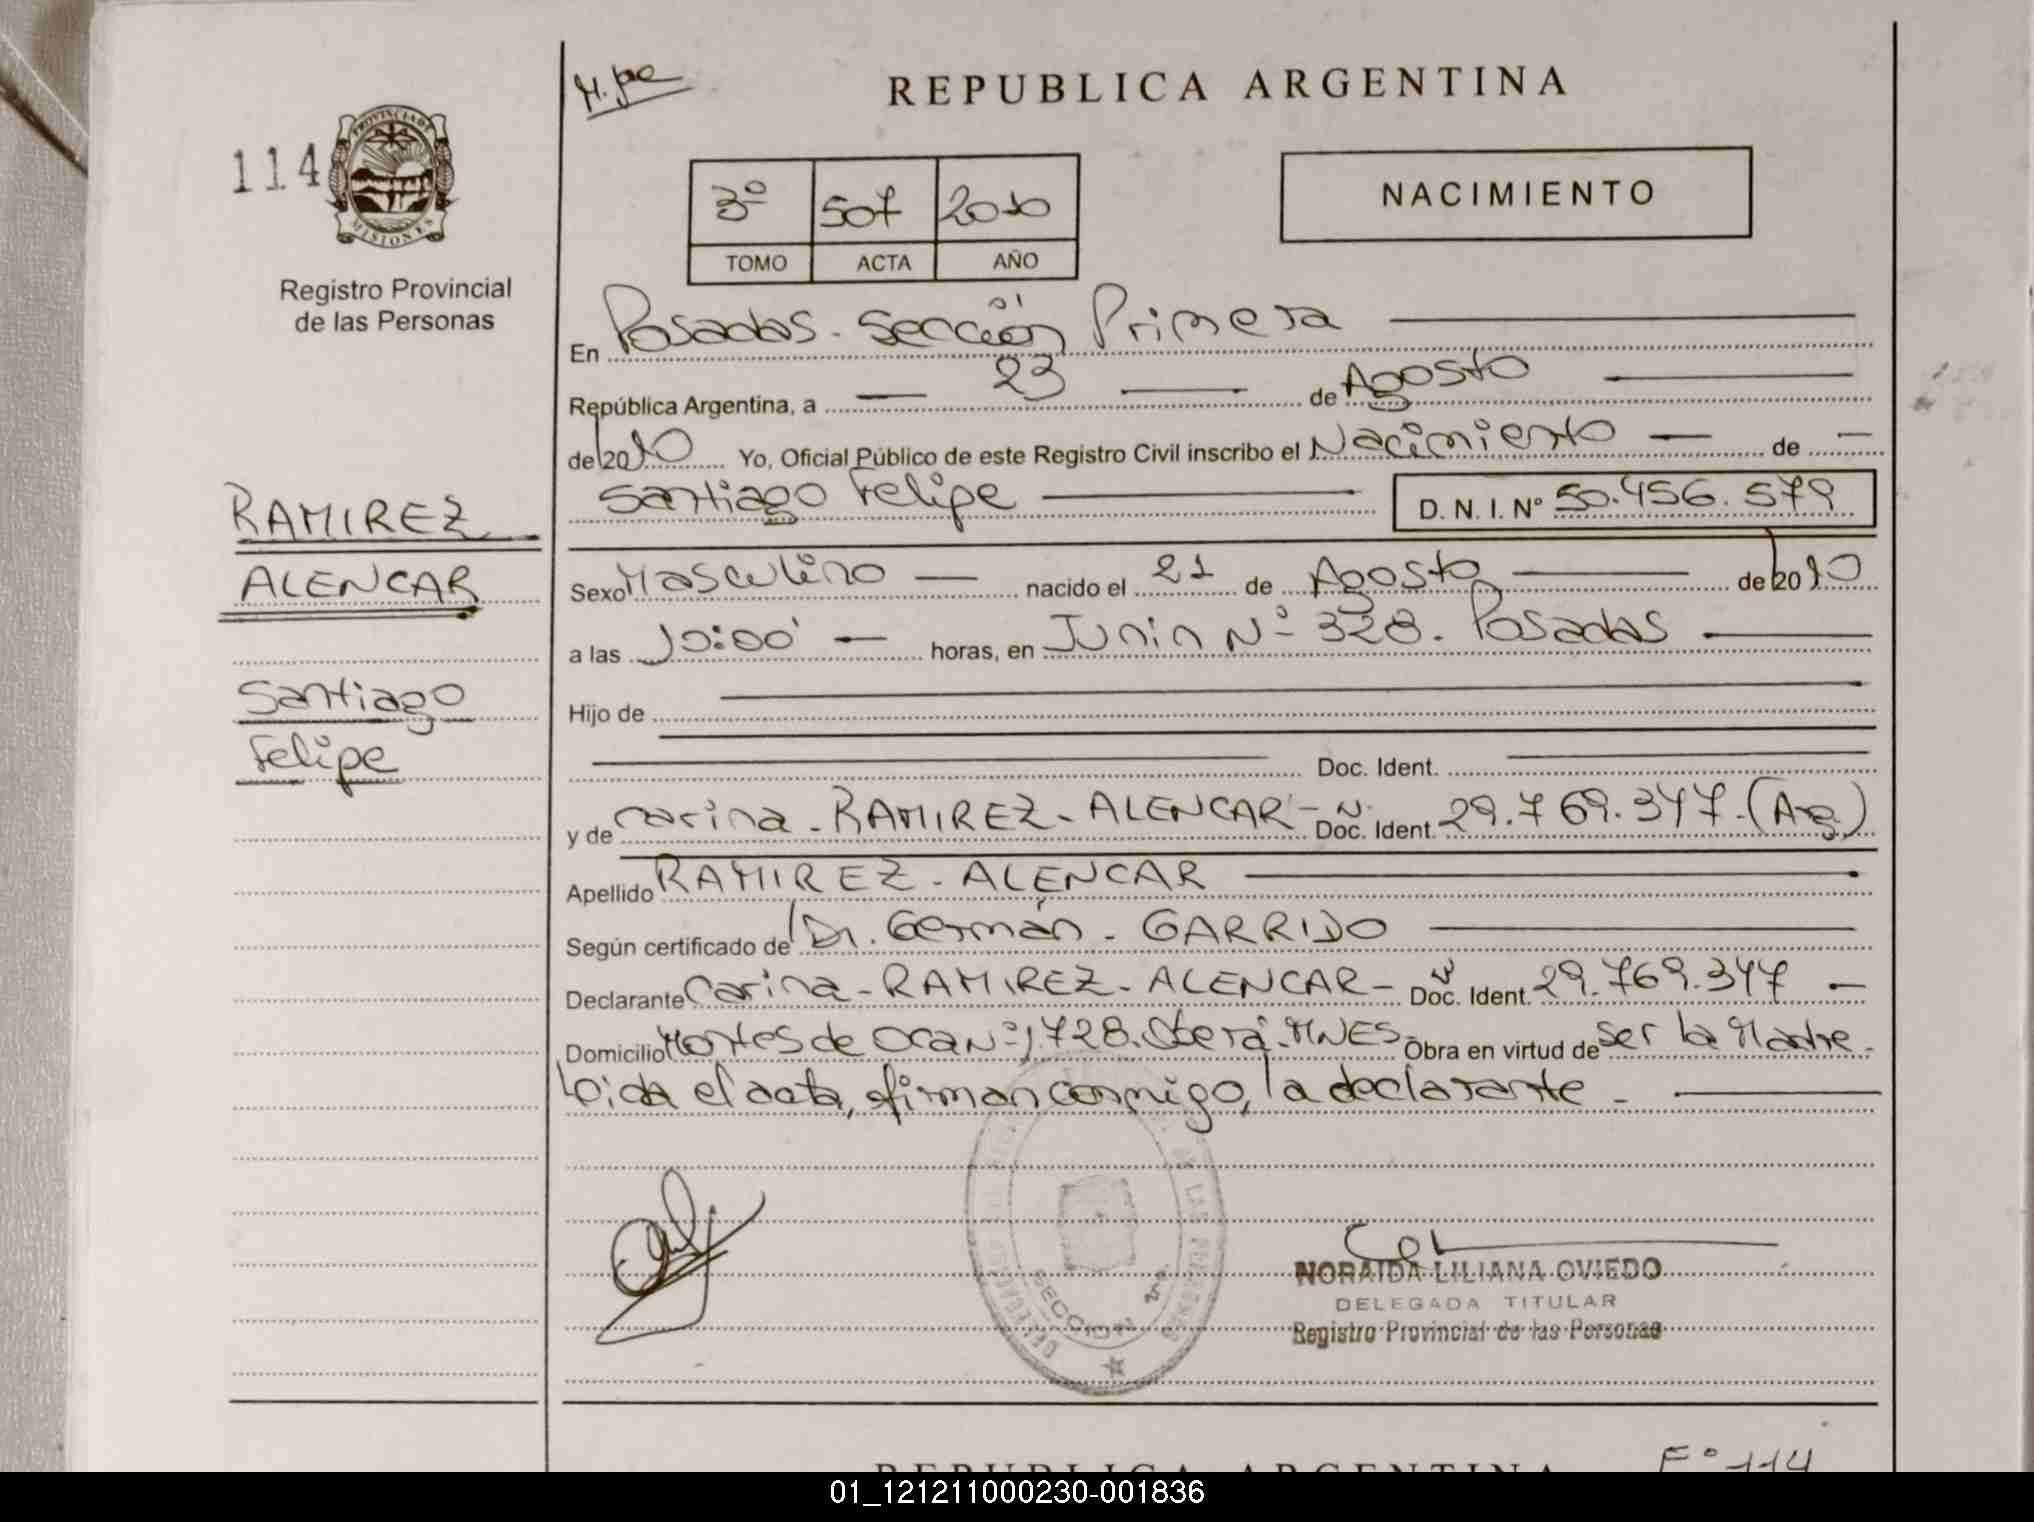 REPUBLICA ARGENTINA
114
PROVINCIA DE
MISIONES
Registro Provincial
de las Personas
3º 507 2010
TOMO ACTA AÑO
NACIMIENTO
En Posadas - Sección Primera
República Argentina, a 23 de Agosto
de 2010 Yo, Oficial Público de este Registro Civil inscribo el Nacimiento de
Santiago Felipe D. N. I. Nº 50.456.579
RAMIREZ
ALENCAR
Santiago
Felipe
Sexo Masculino nacido el 21 de Agosto de 2010
a las 10:00 horas, en Junin Nº 328. Posadas
Hijo de
Doc. Ident.
y de Carina - RAMIREZ - ALENCAR - Doc. Ident. Nº 29.769.347. (Arg)
Apellido RAMIREZ - ALENCAR
Según certificado de Dr. Germán - GARRIDO
Declarante Carina - RAMIREZ - ALENCAR - Doc. Ident. Nº 29.769.347
Domicilio Montes de Oca Nº 1.728. Oberá - MNES. Obra en virtud de ser la Madre.
Leida el acta, firman conmigo, la declarante.
SECCION 1ra
NORAIDA LILIANA OVIEDO
DELEGADA TITULAR
Registro Provincial de las Personas
REPUBLICA ARGENTINA Fº 114
01_121211000230-001836